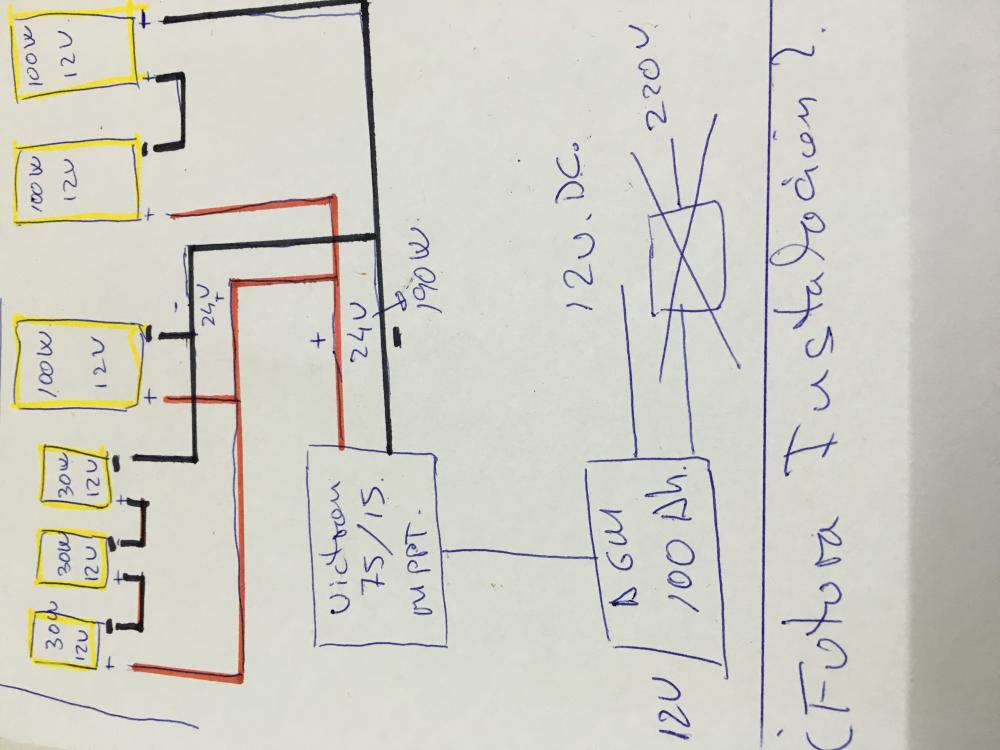 30W
12V
30W
12V
30W
12V
100W
12V
100W
12V
100W
12V
- 24V +
+ 24V -
190W
Victron
75/15
MPPT.
12V.DC.
220V
AGM
100 Ah.
12V
¿Futura Instalación?